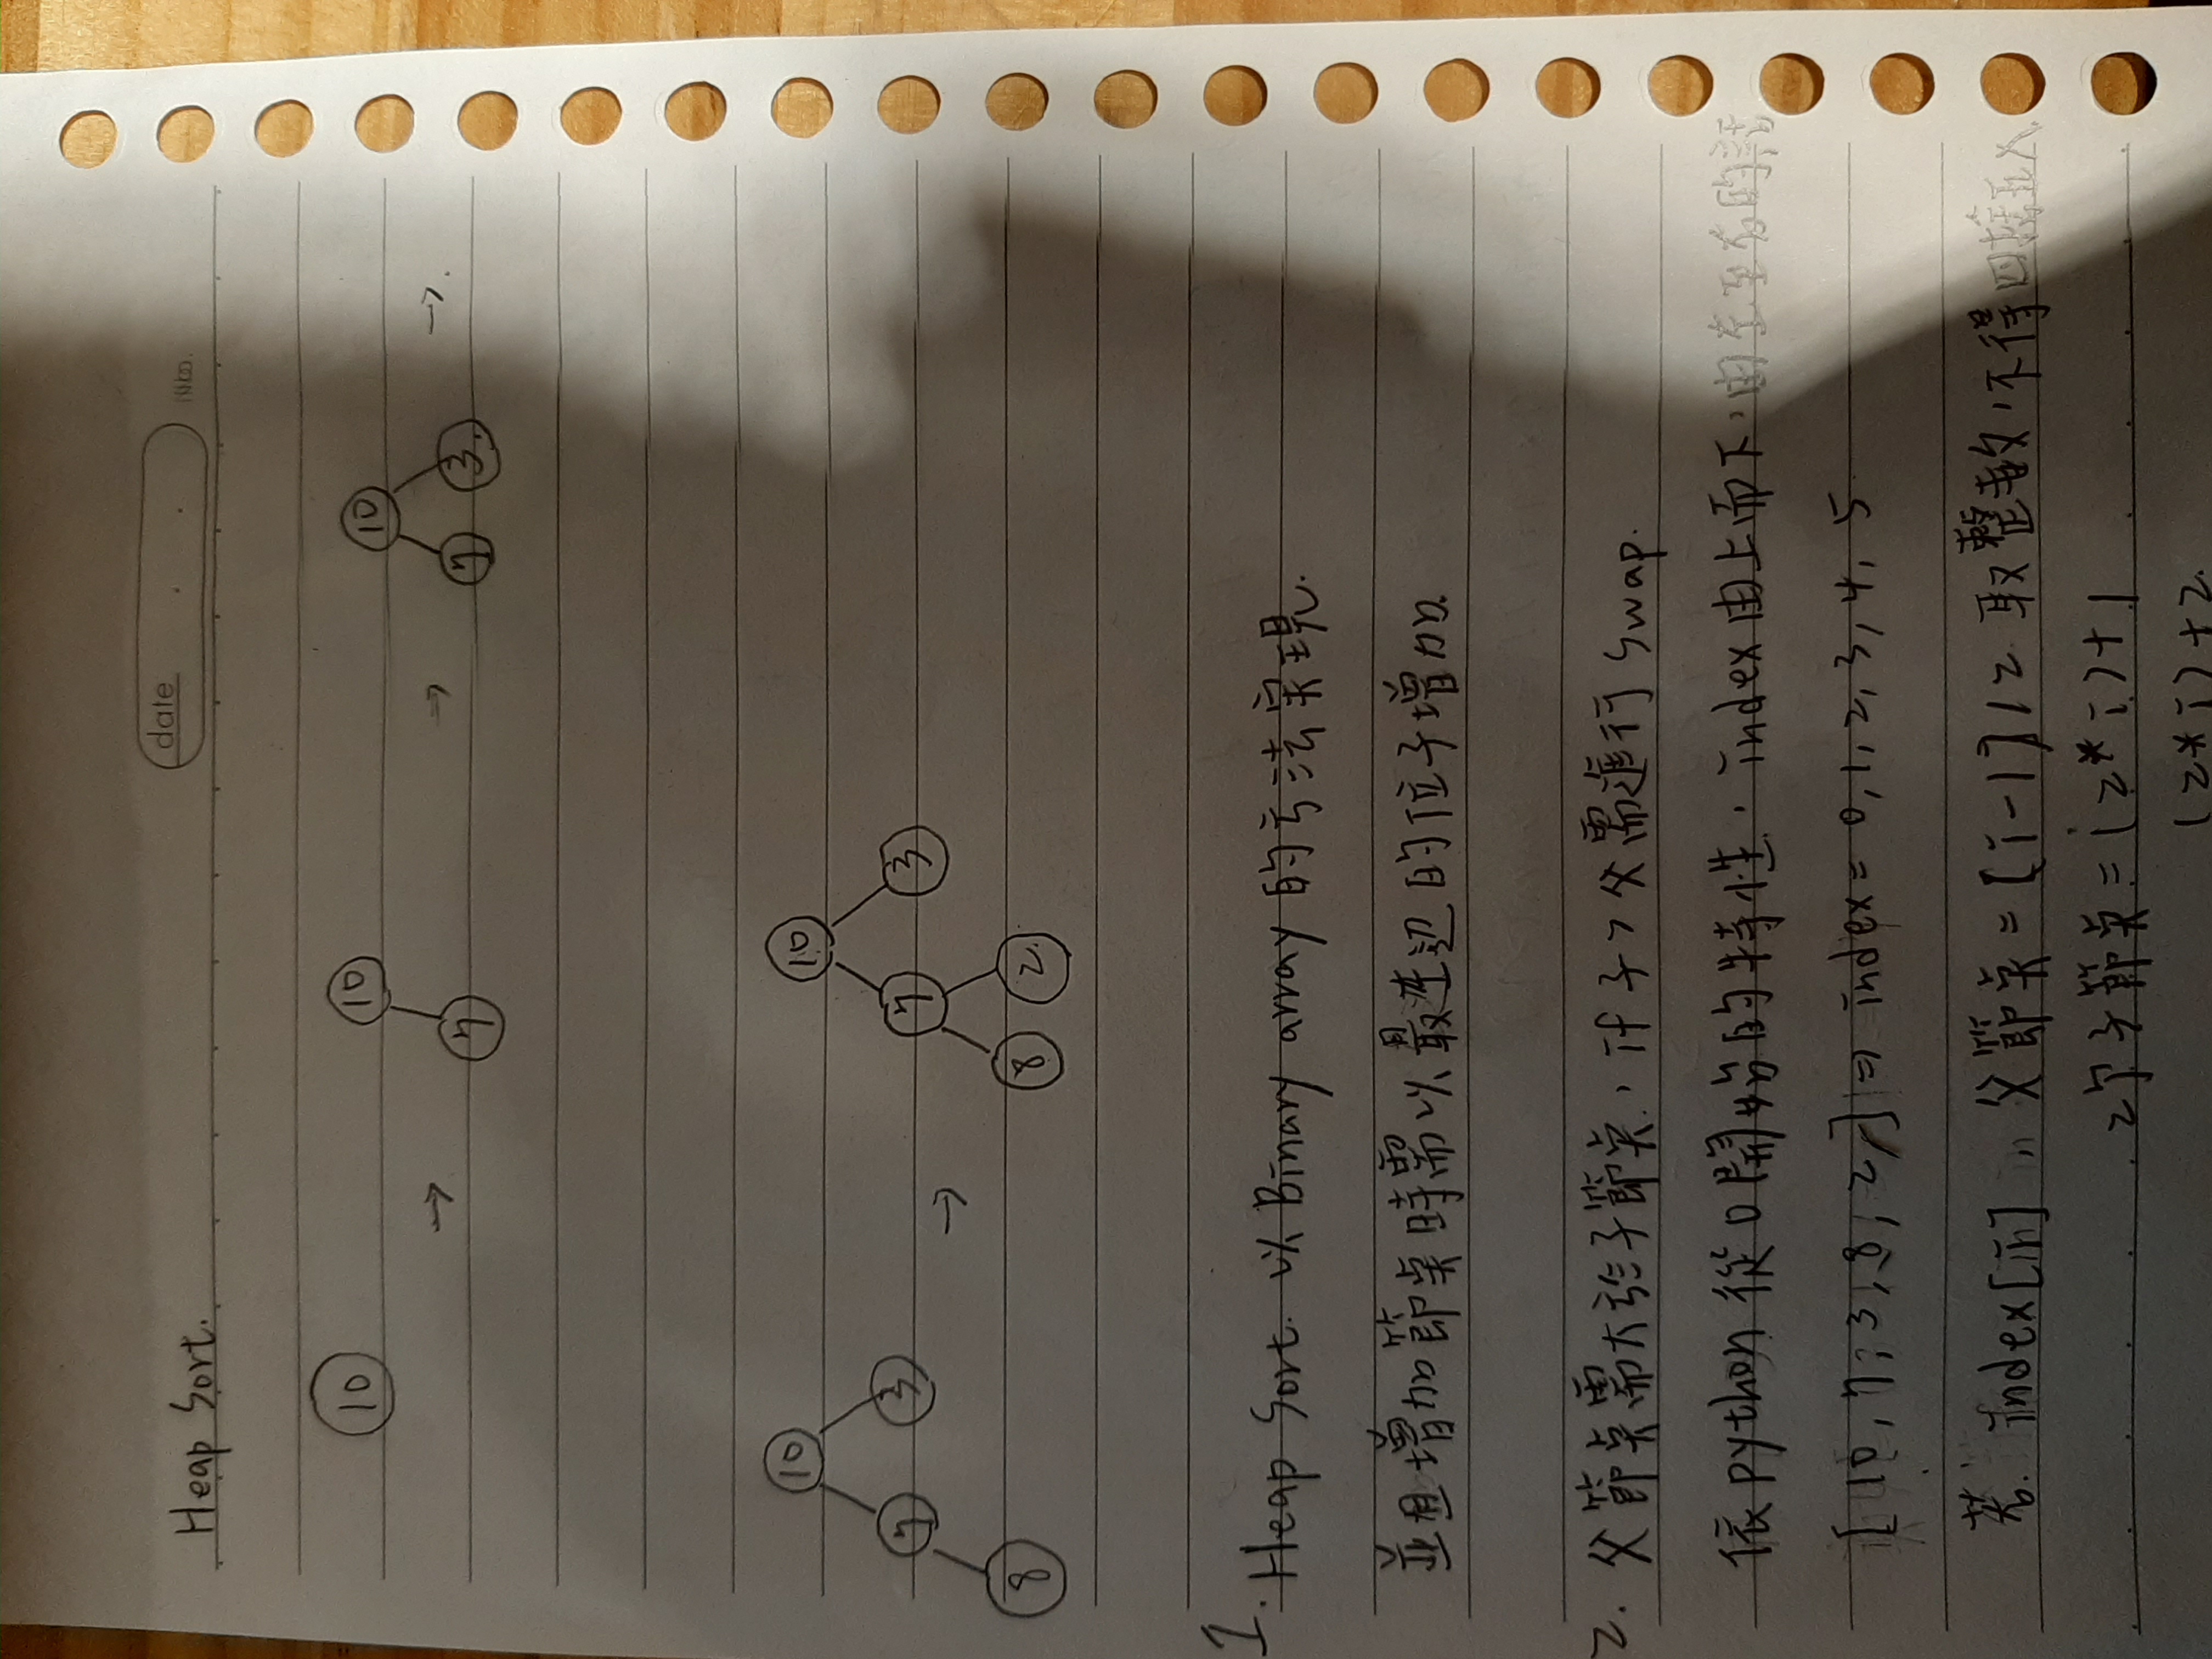 date
No.
Heap Sort.
10 → 10 → 10 →.
7 7 3.
10 10
7 3 → 7 3
8 8 2.
1. Heap Sort. 以 Binary array 的方法実現.
並且增加節点時需以最左边的位子增加.
2. 父節点需大於子節点, if 子 > 父需進行 swap.
依 python 從 0 開始的特性, index 由上而下, 由左至右的話
[ 10, 7, 3, 8, 2, ] ⇒ index = 0, 1, 2, 3, 4, 5
若. index[i], 父節点 = [i-1]/2 取整数, 不得四捨五入.
2个子節点 = (2*i)+1
(2*i)+2.